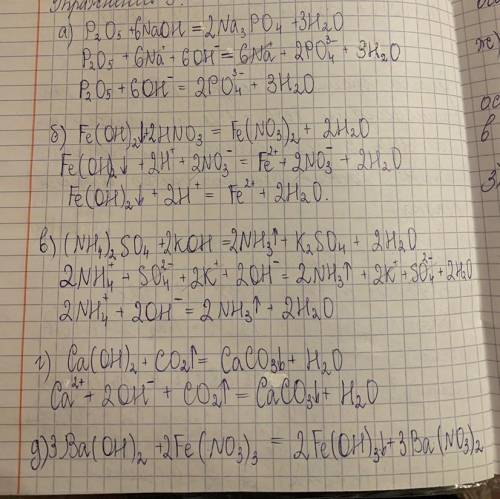 Упражнение 5.
а) P₂O₅ + 6NaOH = 2Na₃PO₄ + 3H₂O
P₂O₅ + 6Na⁺ + 6OH⁻ = 6Na⁺ + 2PO₄³⁻ + 3H₂O
P₂O₅ + 6OH⁻ = 2PO₄³⁻ + 3H₂O
б) Fe(OH)₂↓ + 2HNO₃ = Fe(NO₃)₂ + 2H₂O
Fe(OH)₂↓ + 2H⁺ + 2NO₃⁻ = Fe²⁺ + 2NO₃⁻ + 2H₂O
Fe(OH)₂↓ + 2H⁺ = Fe²⁺ + 2H₂O.
в) (NH₄)₂SO₄ + 2KOH = 2NH₃↑ + K₂SO₄ + 2H₂O
2NH₄⁺ + SO₄²⁻ + 2K⁺ + 2OH⁻ = 2NH₃↑ + 2K⁺ + SO₄²⁻ + 2H₂O
2NH₄⁺ + 2OH⁻ = 2NH₃↑ + 2H₂O
г) Ca(OH)₂ + CO₂↑ = CaCO₃↓ + H₂O
Ca²⁺ + 2OH⁻ + CO₂↑ = CaCO₃↓ + H₂O
д) 3Ba(OH)₂ + 2Fe(NO₃)₃ = 2Fe(OH)₃↓ + 3Ba(NO₃)₂
ж)
ос
в
З